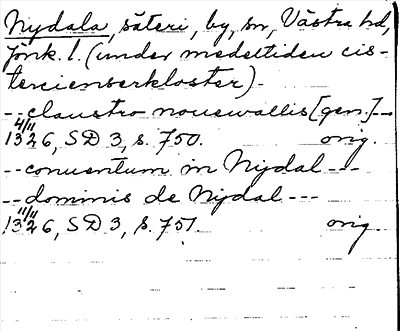 Nydala, säteri, by, sn, Västra hd,
Jönk. l. (under medeltiden cis-
tercienserkloster).
-- claustro nouewallis [gen.] --
4/11 1326, SD 3, s. 750. orig.
-- conuentum in Nydal ---
-- dominis de Nydal ---
11/11 1326, SD 3, s. 751. orig.